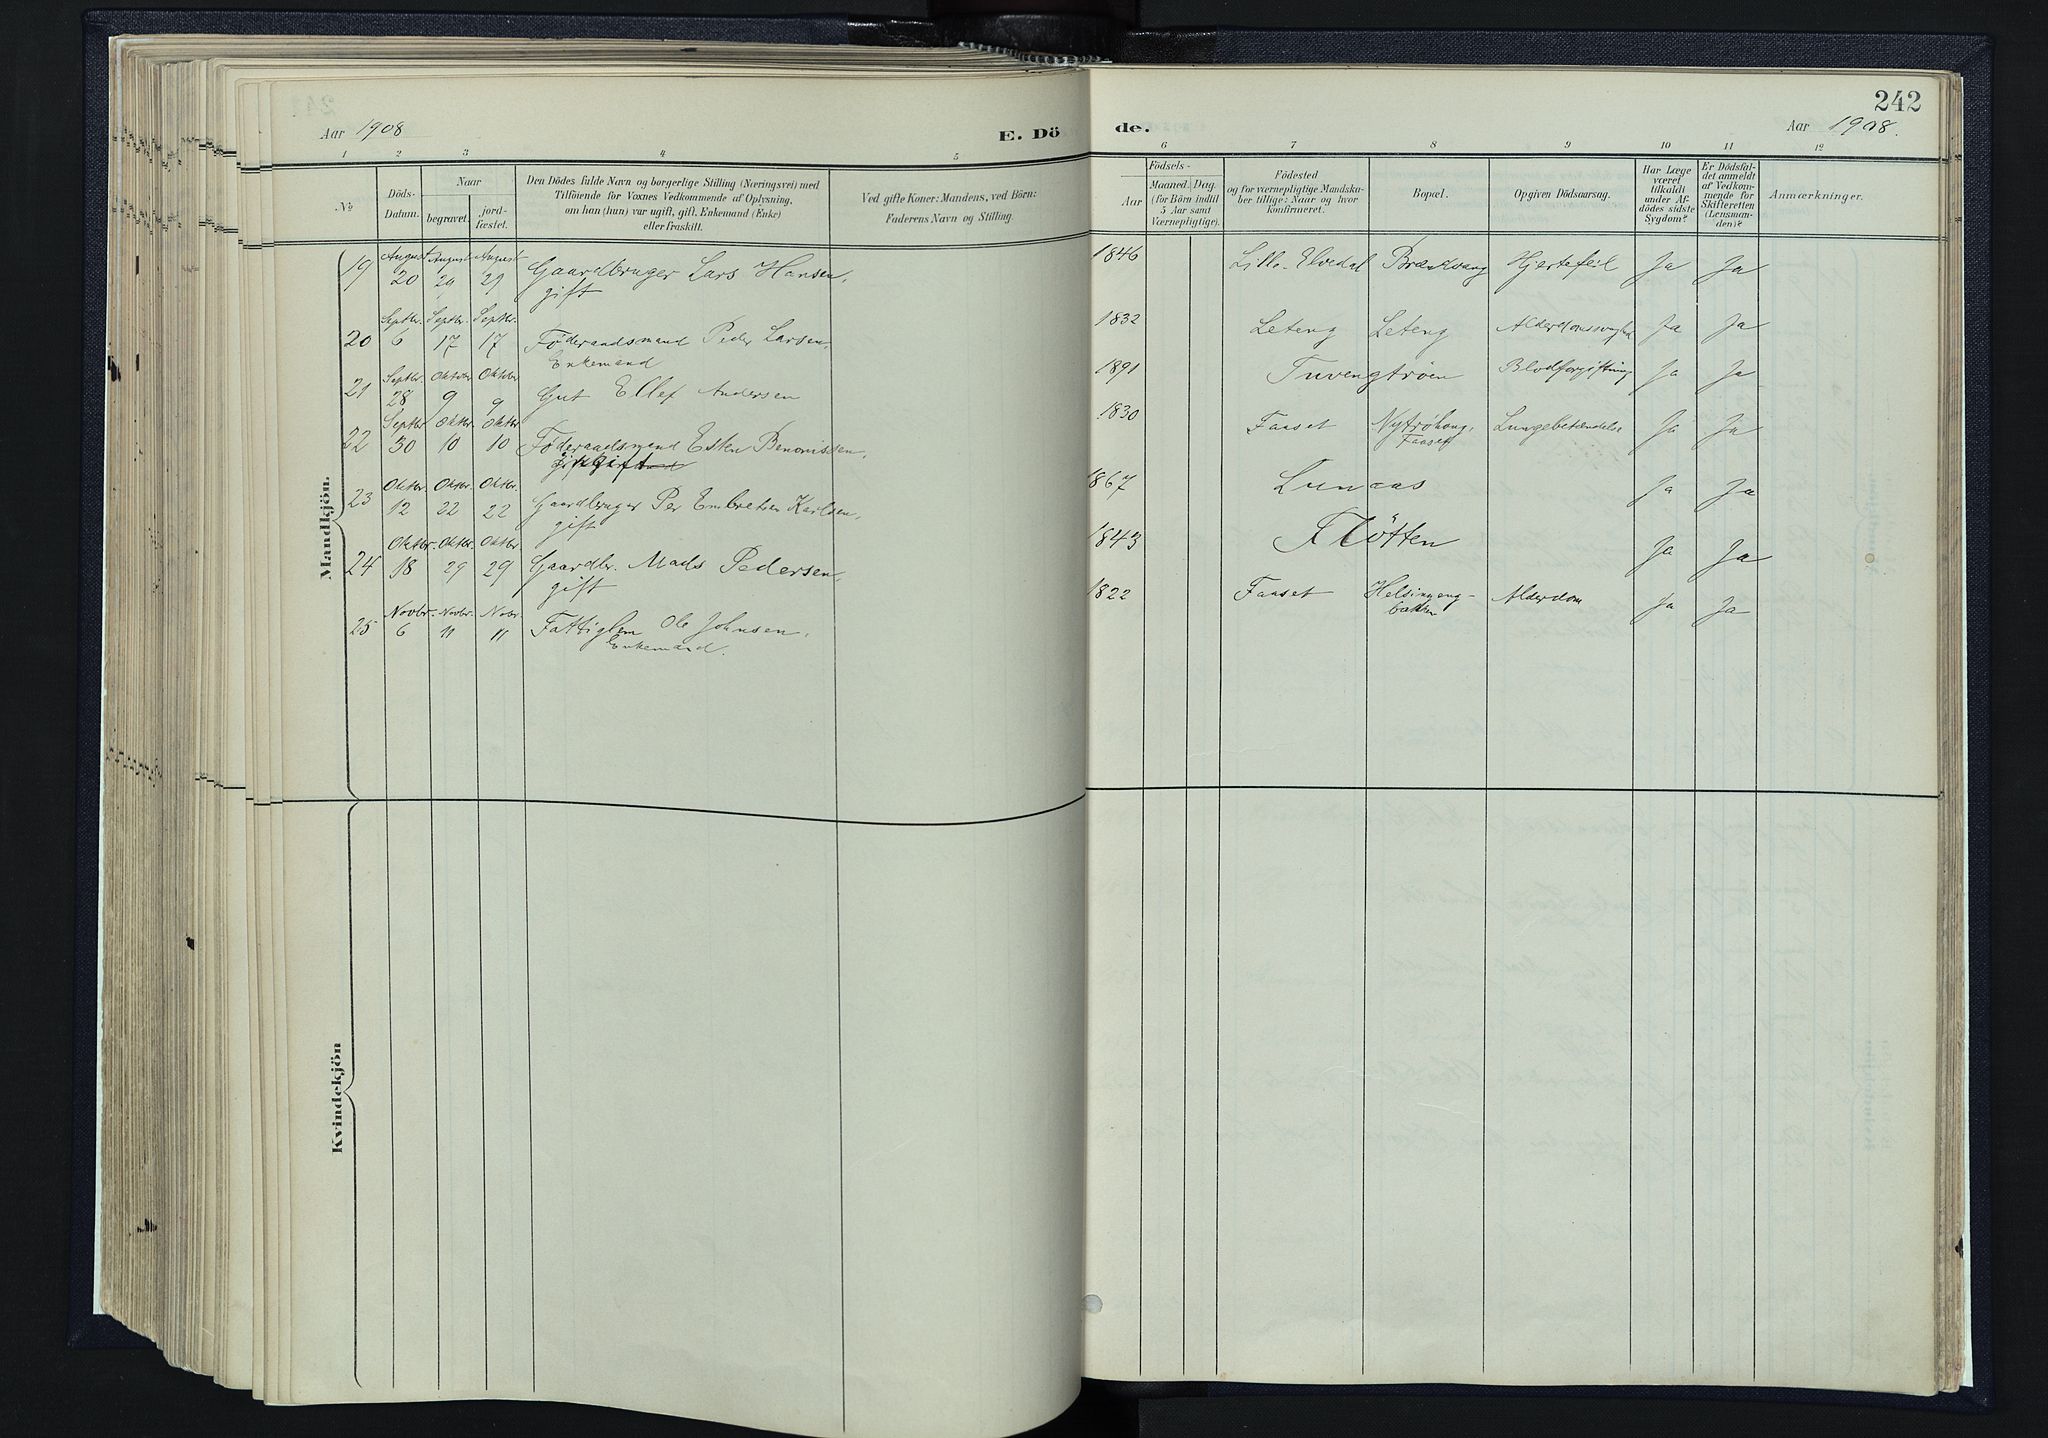 242
Aar 1908
E. Dö
de.
Aar 1908.
1 2 3 4 5
6 7 8 9 10 11 12
No
Döds-
Datum.
Naar
begravet.
jord-
fæstet.
Den Dödes fulde Navn og borgerlige Stilling (Næringsvei) med
Tilföiende for Voxnes Vedkommende af Oplysning,
om han (hun) var ugift, gift, Enkemand (Enke)
eller fraskilt.
Ved gifte Koner: Mandens, ved Börn:
Faderens Navn og Stilling.
Födsels-
Aar
Maaned. Dag.
(for Börn indtil
5 Aar samt
Værnepligtige).
Födested
og for værnepligtige Mandska-
ber tillige: Naar og hvor
konfirmeret.
Bopæl.
Opgiven Dödsaarsag.
Har Læge
været
tilkaldt
under Af-
dödes sidste
Sygdom?
Er Dödsfal-
det anmeldt
af Vedkom-
mende for
Skifteretten
(Lensman-
den)?
Anmærkninger.
Mandkjön.
19 August 20 August 29 August 29 Gaardbruger Lars Hansen, 1846 Lille-Elvedal Brænvang Hjertefeil Ja Ja
gift
20 Septbr. 6 Septbr. 17 Septbr. 17 Föderaadsmand Peder Larsen, 1832 Leteng Leteng Ja Ja
Enkemand
21 Septbr. 28 Oktober 9 Oktober 9 Gut Ellef Andersen 1891 Tuvengtröen Blodforgiftning Ja Ja
22 Septbr 30 Oktbr. 10 Oktbr 10 Föderaadsmand Esten Benonissen, 1830 Faaset Faaset Lungebetændelse Ja Ja
gift
23 Oktbr. 12 Oktbr. 22 Oktbr. 22 Gaardbruger Per Embretsen Karlsen, 1867 Lunaas Ja Ja
gift
24 Oktbr. 18 Oktbr. 29 Oktbr. 29 Gaardbr. Mads Pedersen, 1843 Flötten Ja Ja
gift
25 Novbr. 6 Novbr. 11 Nobr. 11 Fattiglem Ole Johnsen, 1822 Faaset Helsingeng-
bakken Alderdom Ja Ja
Enkemand.
Kvindekjön